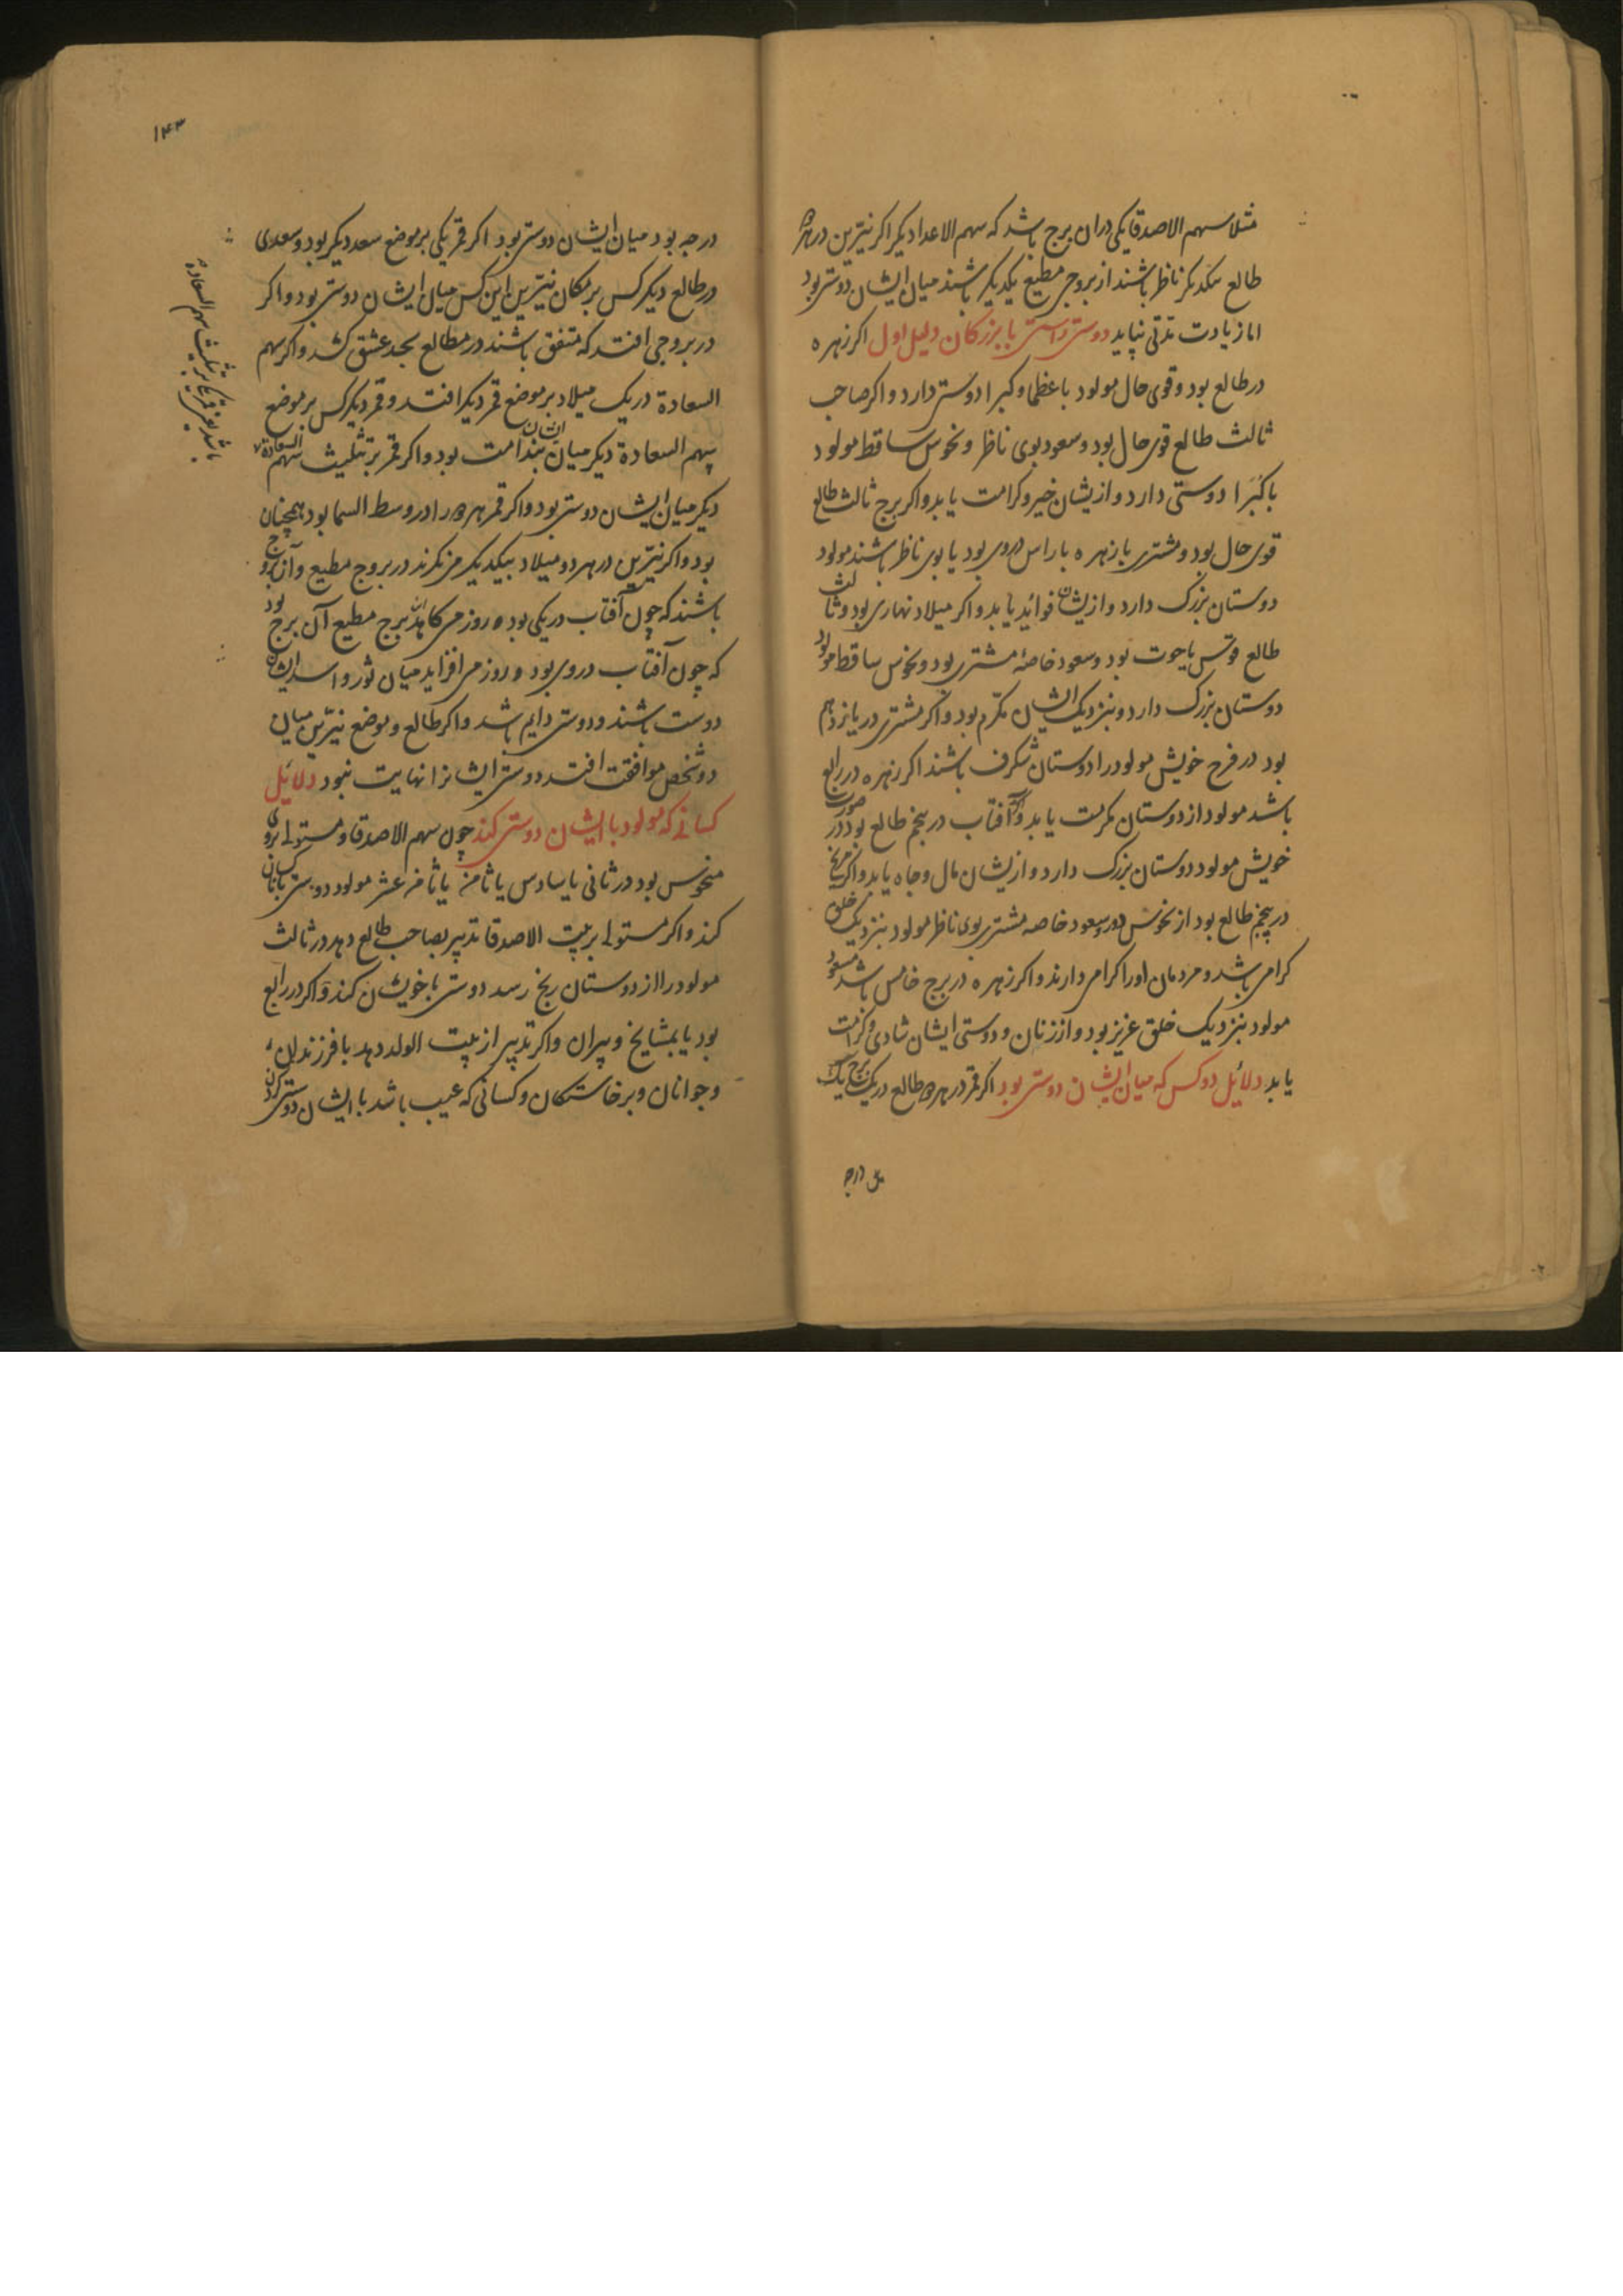 مثلا سهم الاصدقا یکی دران برج باشد که سهم الاعدا دیکر اکر نیّرین در هر دو
طالع بیکدیکر ناظر باشند از بروجی مطیع یکدیکر باشند میان ایشان دوستی بود
اما زیادت مدّتی نپاید دوستی داشتن با بزرکان دلیل اول اکر زهره
در طالع بود و قوی حال مولود با عظما و کبرا دوستی دارد و اکر صاحب
ثالث طالع قوی حال بود و سعود بوی ناظر و نحوس ساقط مولود
با کبرا دوستی دارد و ازیشان خیر و کرامت یابد و اکر برج ثالث طالع
قوی حال بود و مشتری یا زهره یا راس دروی بود یا بوی ناظر باشند مولود
دوستان بزرک دارد و ازیشان فواید یابد و اکر میلاد نهاری بود و ثالث
طالع قوس یا حوت بود و سعود خاصهٔ مشتری بود و نحوس ساقط مولود
دوستان بزرک دارد و بنزدیک ایشان مکرّم بود و اکر مشتری در یازدهم
بود در فرح خویش مولود را دوستان شکرف باشند اکر زهره در رابع
باشد مولود از دوستان مکرمت یابد و اکر آفتاب در پنجم طالع بود در
خویش مولود دوستان بزرک دارد و ازیشان مال و جاه یابد و اکر مریخ
در پنجم طالع بود از نحوس دور و سعود خاصه مشتری بوی ناظر مولود بنزدیک خلق
کرامی باشد و مردمان اورا کرامی دارند و اکر زهره در برج خامس باشد مسعود
مولود بنزدیک خلق عزیز بود و از زنان و دوستی ایشان شادی و کرامت
یابد دلائل دو کس که میان ایشان دوستی بود اکر قمر در هر دو طالع در یک برج یک
درجه
۱۴۳
درجه بود میان ایشان دوستی بود اکر قمر یکی بر موضع سعد دیکر بود و سعدی
در طالع دیکر کس بر مکان نیّرین این کس میان ایشان دوستی بود و اکر
در بروجی افتد که متفق باشند در مطالع بحد عشق کشد و اکر سهم
السعادة در یک میلاد بر موضع قمر دیکر افتد و قمر دیکر کس بر موضع
سهم السعادة دیکر میان ایشان ندامت بود و اکر قمر بر تثلیث سهم السعادة
دیکر میان ایشان دوستی بود و اکر قمر هر دو را در وسط السما بود همچنان
بود و اکر نیّرین در هر دو میلاد بیکدیکر می نکرند در بروج مطیع و آن بروج
باشند که چون آفتاب در یکی بود روز می کاهد برج مطیع آن برج بود
که چون آفتاب دروی بود روز می افزاید میان ثور و اسد ایشان
دوست باشند و دوستی دایم باشد و اکر طالع و موضع نیّرین میان
دو شخص موافقت افتد دوستی ایشانرا نهایت نبود دلائل
کسانی که مولود با ایشان دوستی کند چون سهم الاصدقا و مستولی بروی
منحوس بود در ثانی یا سادس یا ثامن یا ثانی عشر مولود دوستی با کسان
کند و اکر مستولی بر بیت الاصدقا تدبیر بصاحب طالع دهد در ثالث
مولود را از دوستان رنج رسد دوستی با خویشان کند و اکر در رابع
بود یا بمشایخ و پیران و اکر تدبیر از بیت الولد دهد با فرزندان
و جوانان و برخاستکان و کسانی که عیب باشد با ایشان دوستی کردن
باشد یا قمر یکی بر تثلیث سهم السعادة